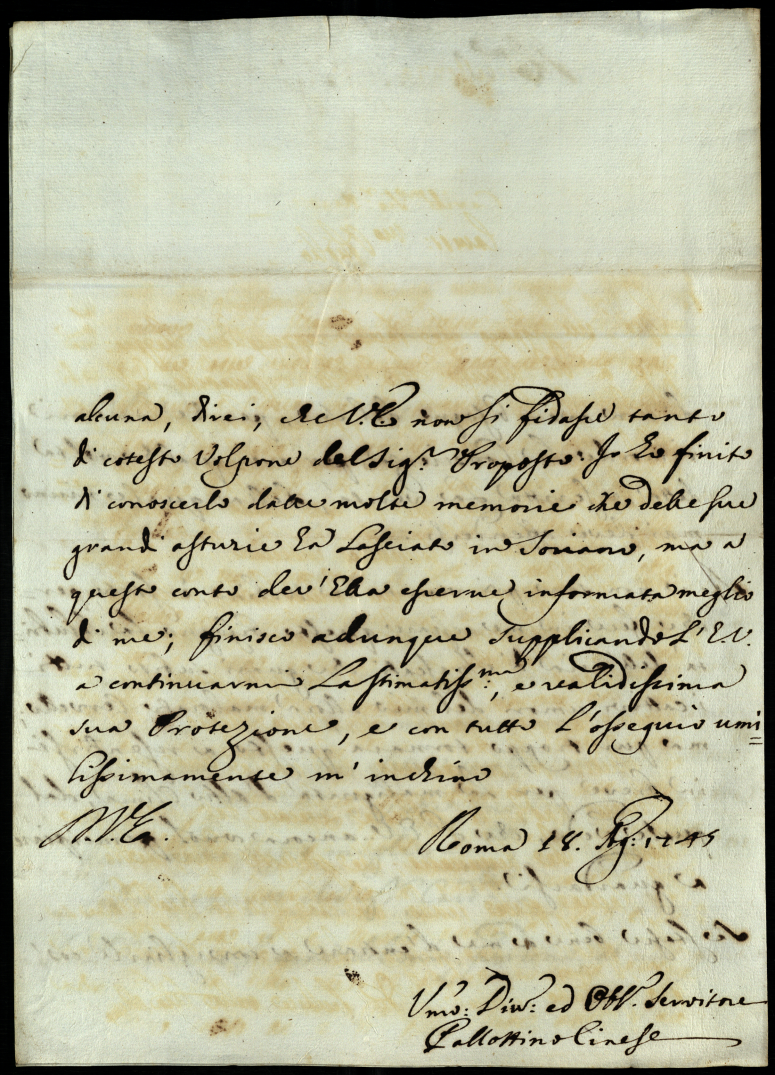 alcuna, direi, che V.E. non si fidasse tanto
di cotesto Volpone del Sig.r Proposto: Io ho finito
di conoscerlo dalle molte memorie che delle sue
grandi asturie ha lasciato in Soriano, ma a
questo conto dev'Ella esserne informata meglio
di me; finisco adunque supplicando L'E.V.
a continuarmi La stimatiss.ma, e validissima
sua Protezione, e con tutto L'ossequio umi
lissimamente m'inchino
Roma 18. Ag: 1745
Umo: Divo: ed Obb. Servitore
Pallottino Cinese